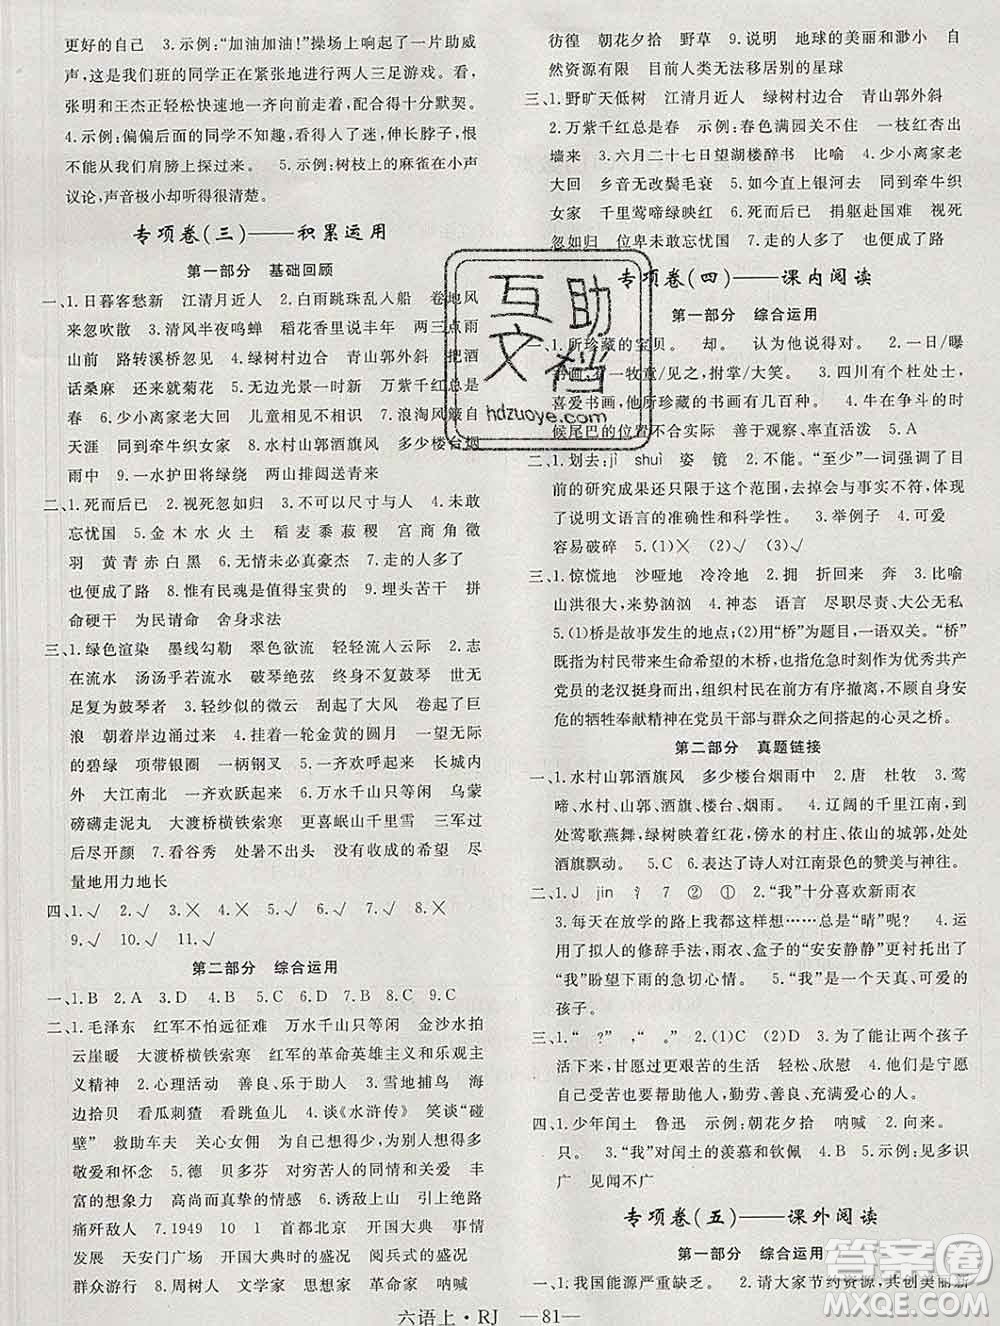 更好的自己　3.示例:“加油加油!”操场上响起了一片助威
声,这是我们班的同学正在紧张地进行两人三足游戏。看,
张明和王杰正轻松快速地奔跑着,配合得十分默契。
4.示例:偏偏后面的同学不知趣,看得入了迷,伸长脖子,恨
不能从我们肩膀上探过来。　5.示例:树枝上的麻雀在小声
议论,声音极小却听得很清楚。
专项卷(三)——积累运用
第一部分　基础回顾
一、1.日暮客愁新　江清月近人　2.白雨跳珠乱入船　卷地风
来忽吹散　3.清风半夜鸣蝉　稻花香里说丰年　两三点雨
山前　路转溪桥忽见　4.绿树村边合　青山郭外斜　把酒
话桑麻　还来就菊花　5.无边光景一时新　万紫千红总是
春　6.少小离家老大回　儿童相见不相识　7.浪淘风簸自
天涯　同到牵牛织女家　8.水村山郭酒旗风　多少楼台烟
雨中　9.一水护田将绿绕　两山排闼送青来
二、1.死而后已　2.视死忽如归　3.不可以尺寸与人　4.未敢
忘忧国　5.金木水火土　稻麦黍菽稷　宫商角徵
羽　黄青赤白黑　6.无情未必真豪杰　7.走的人多了
也便成了路　8.惟有民魂是值得宝贵的　9.埋头苦干　拼
命硬干　为民请命　舍身求法
三、1.绿色渲染　墨线勾勒　翠色欲流　轻轻流入云际　2.志
在流水　汤汤乎若流水　破琴绝弦　终身不复鼓琴　世无
足复为鼓琴者　3.轻纱似的微云　刮起了大风　卷起了巨
浪　朝着岸涌过来　4.挂着一轮金黄的圆月　一望无际
的碧绿　项带银圈　一齐欢跃起来　5.红旗漫卷　长城内
外　大江南北　一齐欢跃起来　6.万水千山只等闲　乌蒙
磅礴走泥丸　大渡桥横铁索寒　更喜岷山千里雪　三军过
后尽开颜　7.看谷秀　处暑不出头　没有收成的希望　尽
量地用力地长
四、1.√　2.√　3.×　4.×　5.√　6.√　7.√　8.√
9.√　10.√　11.√
第二部分　综合运用
一、1.B　2.A　3.D　4.B　5.C　6.B　7.D　8.C　9.C
二、1.毛泽东　红军不怕远征难　万水千山只等闲　金沙水拍
云崖暖　大渡桥横铁索寒　红军的革命英雄主义和乐观主
义精神　2.心理活动　善良、乐于助人　3.雪地捕鸟　海
边拾贝　看瓜刺猹　看跳鱼儿　4.谈《水浒传》　笑谈“碰
壁”　救助车夫　关心女佣　
敬爱和怀念　5.德　贝多芬　对穷苦人的同情　
典型人物　高尚而真挚的情感　6.诱敌上山　
痛歼敌人　7.1949　10　1　首都北京　开国大典　事情
发展　天安门广场　开国大典的盛况　阅兵式的盛况
群众游行　8.周树人　文学家　思想家　革命家　呐喊
彷徨　朝花夕拾　野草　9.说明　地球的美丽和渺小
自然资源有限　目前人类无法移居别的星球
三、1.野旷天低树　江清月近人　绿树村边合　青山郭外斜
2.万紫千红总是春　示例:春色满园关不住　一枝红杏出
墙来　3.六月二十七日望湖楼醉书　比喻　4.少小离家老
大回　乡音无改鬓毛衰　5.如今直上银河去　同到牵牛织
女家　千里莺啼绿映红　6.死而后已　捐躯赴国难　视死
忽如归　位卑未敢忘忧国　7.走的人多了　也便成了路
专项卷(四)——课内阅读
第一部分　综合运用
一、1.所珍藏的宝贝。　却。　认为他说得对。　2.一日/曝
书画,有一牧童/见之,拊掌/大笑。　3.四川有个杜处士,
喜爱书画,他所珍藏的书画有几百种。　4.牛在争斗的时
候尾巴的位置不合实际　善于观察、率直活泼　5.A
二、1.划去:jǐ　shuì　姿　镜　2.不能。“至少”一词强调了目
前的研究成果还没有超出这个范围,删去后会与事实不符,体现
了说明文语言的准确性和科学性。　3.举例子　4.可爱
容易破碎　5.(1)×　(2)√
三、1.惊慌地　沙哑地　冷冷地　2.拥　折回来　奔　3.比喻
山洪很大,来势汹汹　4.神态　语言　尽职尽责、大公无私
5.(1)桥是故事发生的地点;(2)用“桥”为题目,一语双关。“桥”
既指为村民带来生命希望的木桥,也指危急关头,优秀共产
党员的老汉挺身而出,组织村民有序撤离,不顾自身安
危的牺牲奉献精神在党员干部与群众之间搭起的心灵之桥。
第二部分　真题链接
一、1.水村山郭酒旗风　多少楼台烟雨中　2.唐　杜牧　3.莺
啼、水村、山郭、酒旗、楼台、烟雨。　4.辽阔的千里江南,到
处莺歌燕舞,绿树映着红花,傍水的村庄、依山的城郭,处处
酒旗飘动。　5.C　6.表达了诗人对江南景色的赞美与神往。
二、1.J　jìn　氵　7　②　①　2.“我”十分喜欢新雨衣
3.每天在放学的路上我都这样想……总是“晴”呢?　4.运
用了拟人的修辞手法,雨衣、盒子的“安安静静”更衬托出
“我”盼望下雨的急切心情。　5.“我”是一个天真、可爱的
孩子。
三、1.“　?”　,“　,”　。　2.(1)C　(2)D　3.为了能让两个孩子
活下去,甘愿过更艰苦的生活　轻松、欣慰　4.他们是宁愿
自己受苦,也要帮助别人,勤劳、善良、充满爱心的人。
四、1.少年闰土　鲁迅　示例:朝花夕拾　呐喊　2.向来。
只。　3.“我”对闰土的羡慕和钦佩　4.√　5.示例:见多识
广　见闻不广
专项卷(五)——课外阅读
第一部分　综合运用
一、1.我国能源严重缺乏。　2.请大家节约资源,共创美丽新
六语上·RJ　—81—
互助
文档
hdzuoye.com
答案圈
MXQE.COM